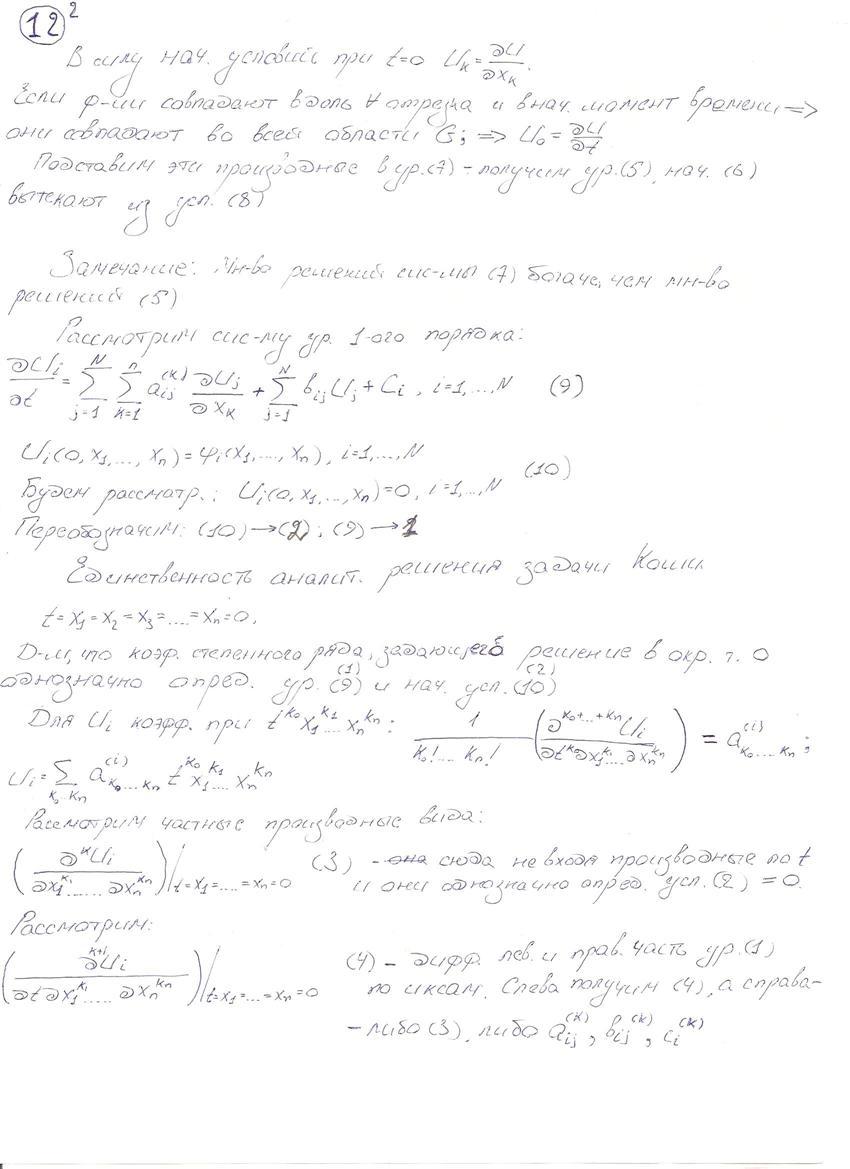 12²
В силу нач. условий при t=0 U_k = ∂U/∂x_k.
Если ф-ии совпадают вдоль ∀ отрезка и в нач. момент времени =>
они совпадают во всей области G; => U_0 = ∂U/∂t
Подставим эти производные в ур.(7) - получим ур.(5), нач. (6)
вытекают из усл. (8)
Замечание: Мн-во решений сис-мы (7) богаче, чем мн-во
решений (5)
Рассмотрим сис-му ур. 1-ого порядка:
∂U_i/∂t = ∑_{j=1}^{N} ∑_{k=1}^{n} a_{ij}^{(k)} ∂U_j/∂x_k + ∑_{j=1}^{N} b_{ij} U_j + C_i, i=1,...,N (9)
U_i(0, x_1, ..., x_n) = φ_i(x_1, ..., x_n), i=1,...,N
(10)
Будем рассматр.: U_i(0, x_1, ..., x_n)=0, i=1,...,N
Переобозначим: (10) → (2); (9) → 1
Единственность аналит. решения задачи Коши.
t = x_1 = x_2 = x_3 = .... = x_n = 0.
Д-м, что коэф. степенного ряда, задающего решение в окр. т. 0
(1) (2)
однозначно опред. ур. (9) и нач. усл. (10)
Для U_i коэфф. при t^{k_0} x_1^{k_1} .... x_n^{k_n}: 1/(k_0! .... k_n!) (∂^{k_0+...+k_n} U_i / ∂t^{k_0} ∂x_1^{k_1} .... ∂x_n^{k_n}) = a^{(i)}_{k_0 .... k_n};
U_i = ∑_{k_0..k_n} a^{(i)}_{k_0 .... k_n} t^{k_0} x_1^{k_1} .... x_n^{k_n}
Рассмотрим частные производные вида:
(∂^k U_i / ∂x_1^{k_1} ...... ∂x_n^{k_n}) |_{t=x_1=....=x_n=0} (3) - она сюда не входя производные по t
и они однозначно опред. усл. (2) = 0.
Рассмотрим:
(∂^{k+1} U_i / ∂t ∂x_1^{k_1} ..... ∂x_n^{k_n}) |_{t=x_1=...=x_n=0} (4) - дифф. лев. и прав. часть ур.(1)
по иксам. Слева получим (4), а справа-
- либо (3), либо a_{ij}^{(k)}, b_{ij}^{(k)}, c_i^{(k)}